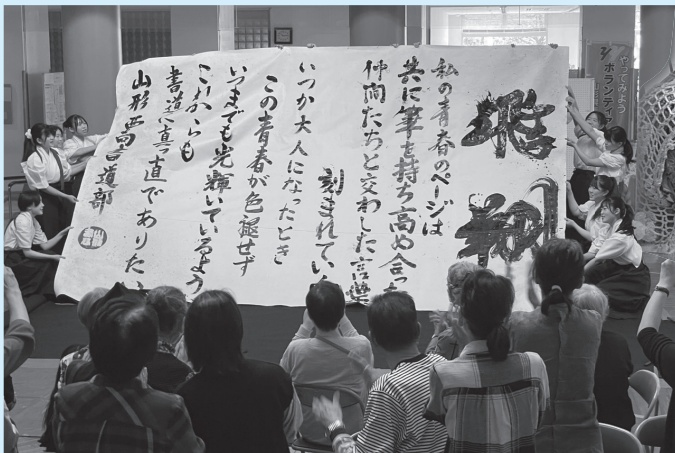 飛翔
私の青春のページは
共に筆を持ち高め合っ
仲間たちと交わした言葉
刻まれてい
いつか大人になったとき
この青春が色褪せず
いつまでも光輝いているよう
これからも
書道に真っ直でありたい
山形西高書道部
やってみよう
ボランティア